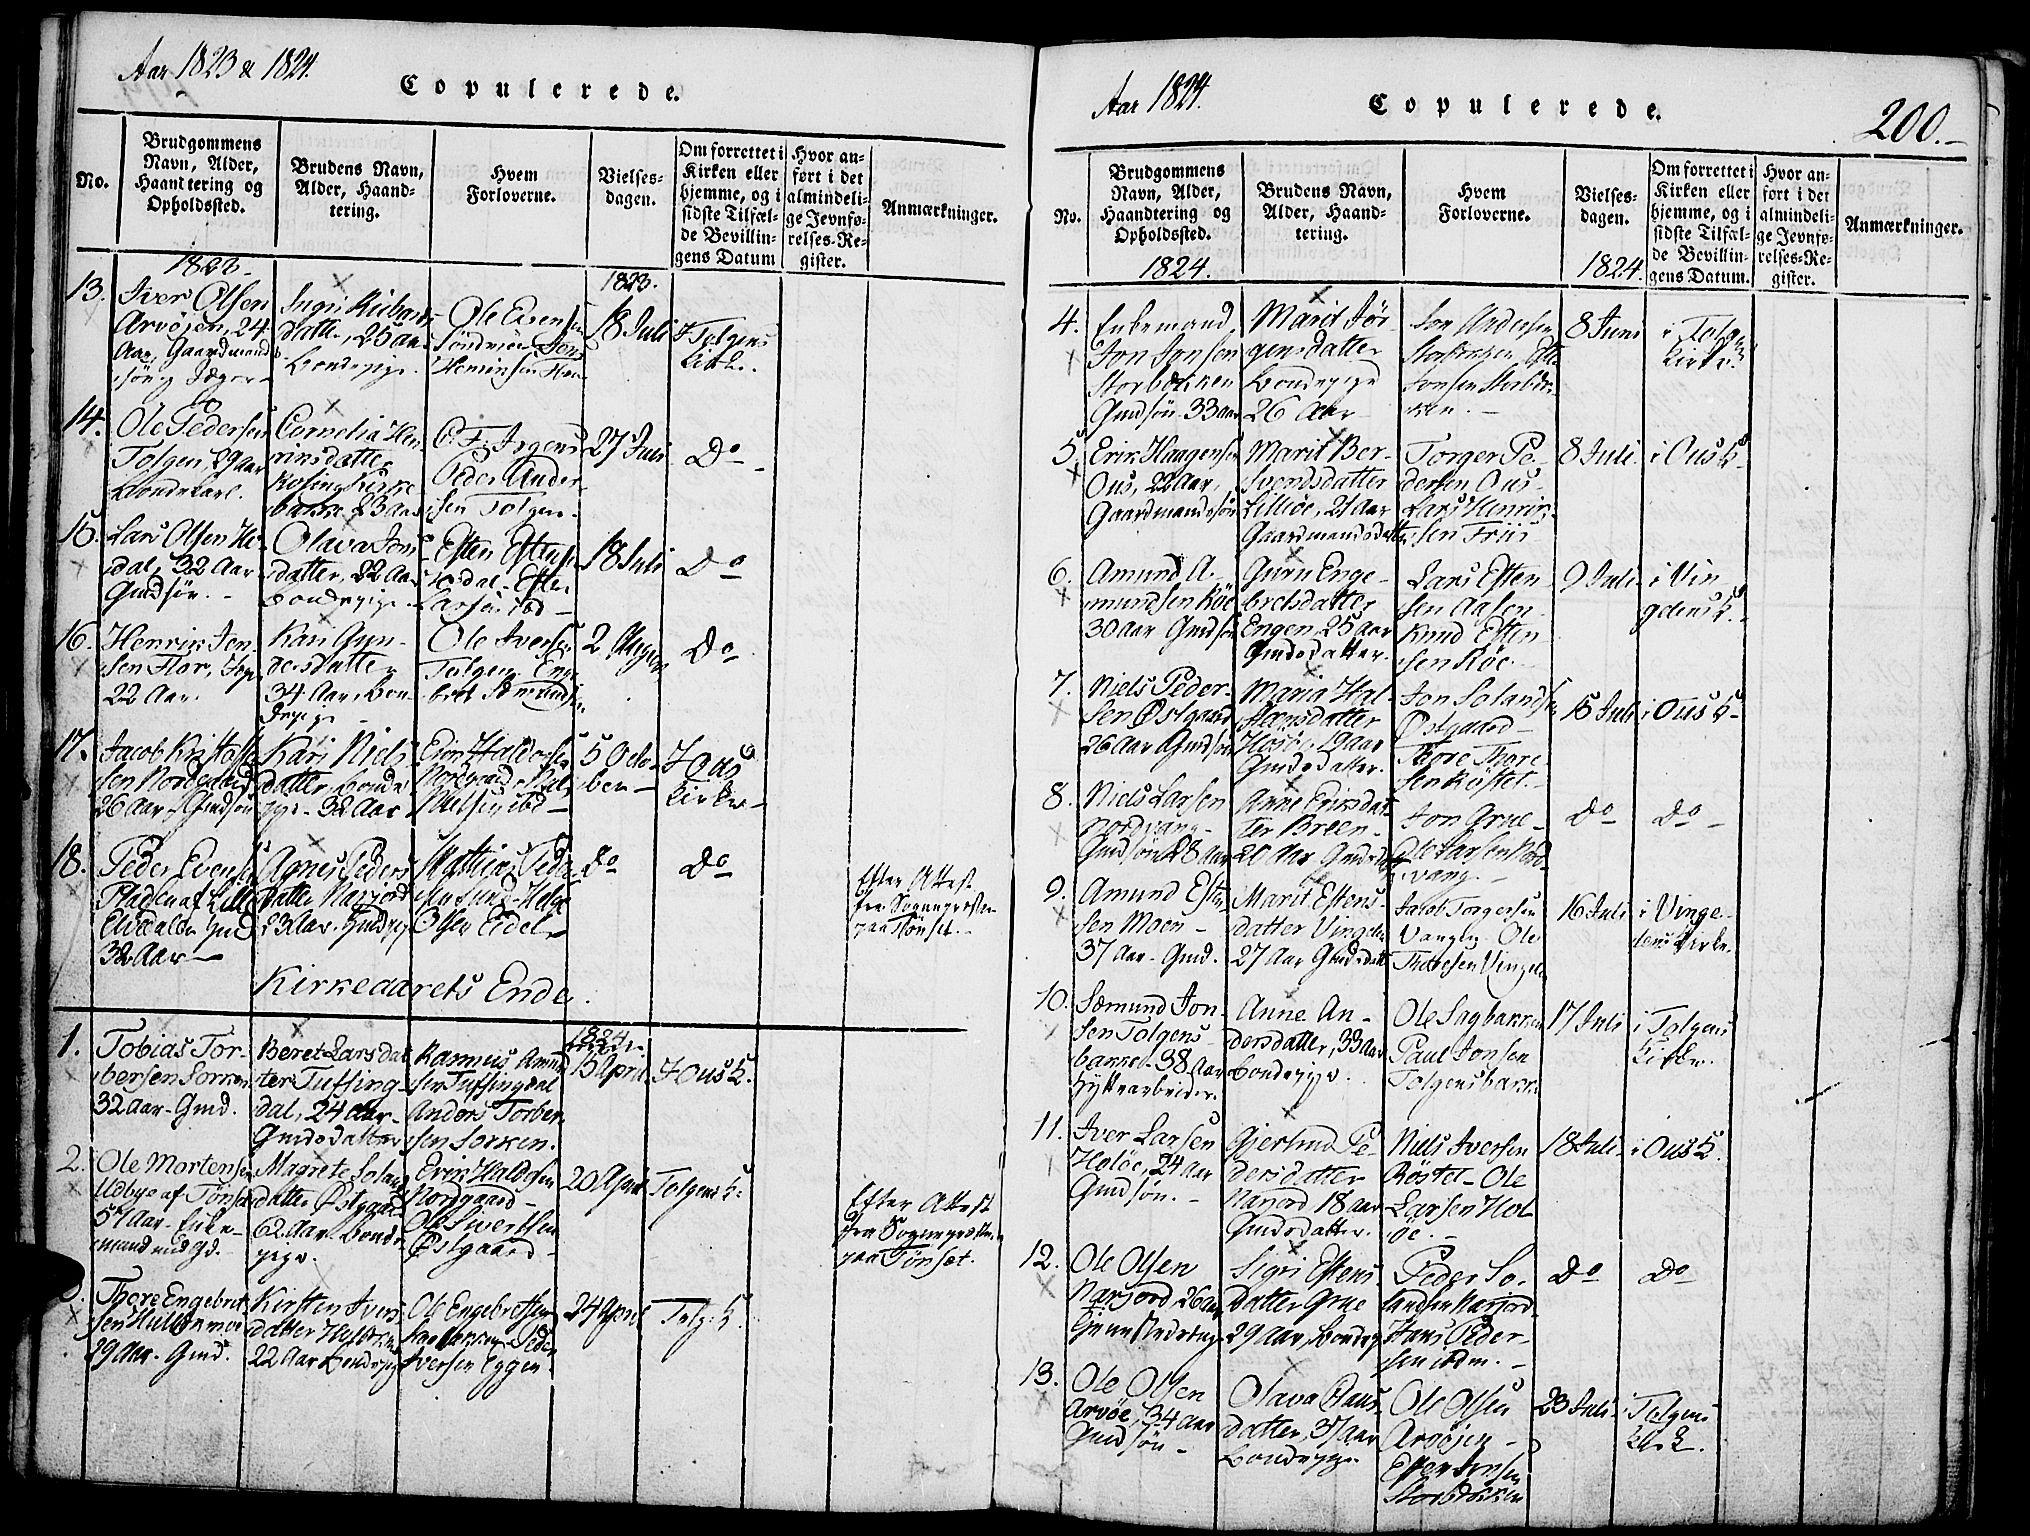 Aar 1823 & 1824.
Copulerede.
No.
Brudgommens
Navn, Alder,
Haandtering og
Opholdssted.
Brudens Navn,
Alder, Haand-
tering.
Hvem
Forloverne.
Vielses-
dagen.
Om forrettet i
Kirken eller
hjemme, og i
sidste Tilfæl-
de Bevillin-
gens Datum
Hvor an-
ført i det
almindeli-
ge Jevnfø-
relses-Re-
gister.
Anmærkninger.
1823.
1823.
13.
Iver Olsen
Arvøjen, 24
Aar, Gaardmands
søn og Jæger
Ingri
datter, 25 aar
Bondepige.
Ole Evensen
18 Juli
I Tolgens
Kirke.
14.
Ole Pedersen
Tolgen, 29 aar
Bondekarl.
Cornelia Hen-
riksdatter
23 aar
Peder Ander-
sen Tolgen.
27 Juli
Do
15.
Lars Olsen He-
dal, 32 Aar
Gmdsøn.
Olava Jons
datter, 22 Aar
Bondepige
Esten Estensen
18 Juli
Do
16.
Henrik Jon-
sen Flor,
22 Aar.
Kari Gun-
dersdatter
34 Aar, Bon-
depige
Ole Iversen
Tolgen, Enge-
bret
2 August
Do
17.
Jacob
sen Nordgaard
26 Aar, Gmdsøn
Kari Niels
datter, bonde
pige. 32 Aar
Erik Haldorsen
Nordgaard
Nielsen ibd
5 Octo-
ber
I Ous
Kirke
18.
Peder Evensen
af Lille
Elvedalen Gmd
32 Aar
Agnes Peders
datter Narjord
23 Aar.
Mathias Peder
sen
Olsen
Do
Do
Efter Attest
fra Sognepresten
paa Tønset.
Kirkeaarets Ende.
1824.
1.
Tobias Tor-
bersen Sorken
32 Aar. Gmd.
Beret Larsdat-
ter Tufsing-
dal, 24 aar
Gmdsdatter
Rasmus Amund
sen Tufsingdal
Anders Torber-
sen Sorken.
15 April
I Ous K.
2.
Ole Mortensen
Udbye af Tønset
57 Aar. Enke-
mand
Magrete Solands
datter Østgaard
62 Aar. Bonde
pige.
Erik Haldorsen
Nordgaard
Ole Siverttsen
Østgaard
20 April
Tolgens K:
Efter Attest
fra Sognepresten
paa Tønset.
Thore Engebret-
sen
29 Aar. Gmd.
Kirsten Ivers
datter
22 Aar Bondepige
Ole Engebretsen
Peder
Iversen Eggen
24 April
Tolg: K.
Aar 1824.
Copulerede.
200.
No.
Brudgommens
Navn, Alder,
Haandtering og
Opholdssted.
1824.
Brudens Navn,
Alder, Haand-
tering.
Hvem
Forloverne.
Vielses-
dagen.
1824.
Om forrettet i
Kirken eller
hjemme, og i
sidste Tilfæl-
de Bevillin-
gens Datum.
Hvor an-
ført i det
almindeli-
ge Jevnfø-
relses-Re-
gister.
Anmærkninger.
4.
Enkemand,
Jon Jonsen
Storbækken
Gmdsøn. 33 Aar
Marit Jör-
gensdatter
Bondepige
26 Aar
Jon Andersen
Storbækken
Jonsen Storbæ-
ken.
8 Juni
i Tolgens
Kirke.
5.
Erik Haagensen
Ous, 22 Aar,
Gaardmandssøn
Marit Ber-
svendsdatter
Lilleöe, 21 Aar
Gaardmandsdatter
Torger Pe-
dersen Ous
Lars Henrik-
sen Friis
8 Juli.
i Ous K.
6.
Amund A-
mundsen Röe
30 Aar Gmdsøn
Guru Enge-
bretsdatter
Engen, 25 aar
Gmdsdatter.
Lars Esten
sen Aasen
Knud Esten
sen Röe.
9 Juli
i Vin
gelens K.
7.
Niels Peder-
sen Østgaard
26 Aar Gmdsøn
Maria Hal-
steensdatter
19 Aar
Gmdsdatter.
Jon Solandsen
Østgaard
Thore Thore
sen Röstet.
15 Juli
i Ous K.
8.
Niels Larsen
Nordvang
Gmdsøn 28 Aar
Anne Eriksdat
ter Breen
20 Aar Gmdsdatter
Jon Grue
Ole Larsen Nord
vang.
Do
Do
9.
Amund Esten
sen Moen
37 Aar. Gmd.
Marit Estens-
datter Vingelen
27 Aar Gmdsdatt
Jacob Torgersen
Vangen. Ole
Thoresen Vingelen
16 Juli
i Vinge-
lens Kirke.
10.
Sæmund Jon-
sen Tolgens-
bakke. 38 Aar
Hyttearbeider.
Anne An-
dersdatter, 33 Aar
Bondepige.
Ole Sagbakken
Paul Jonsen
Tolgensbakke
17 Juli
i Tolgens
Kirke.
11.
Iver Larsen
Holöe, 24 Aar
Gmdsøn.
Gjertrud Pe-
dersdatter
Narjord 18 aar
Gmdsdatter.
Niels Iversen
Röstet. Ole
Larsen Hol-
öe.
18 Juli
i Ous K.
12.
Ole Olsen
Narjord, 26 Aar
Sigri Estens
datter Grue
29 Aar, Bondepige
Peder So-
landsen Narjord
Hans Peder-
sen idem.
Do
Do
13.
Ole Olsen
Arvöe, 34 Aar
Gmdsøn
Olava
datter, 37 Aar
Bondepige
Ole Olsen
Arvöjen
Esten Jonsen
Storbækken
23 Juli
i Tolgens
Kirke.